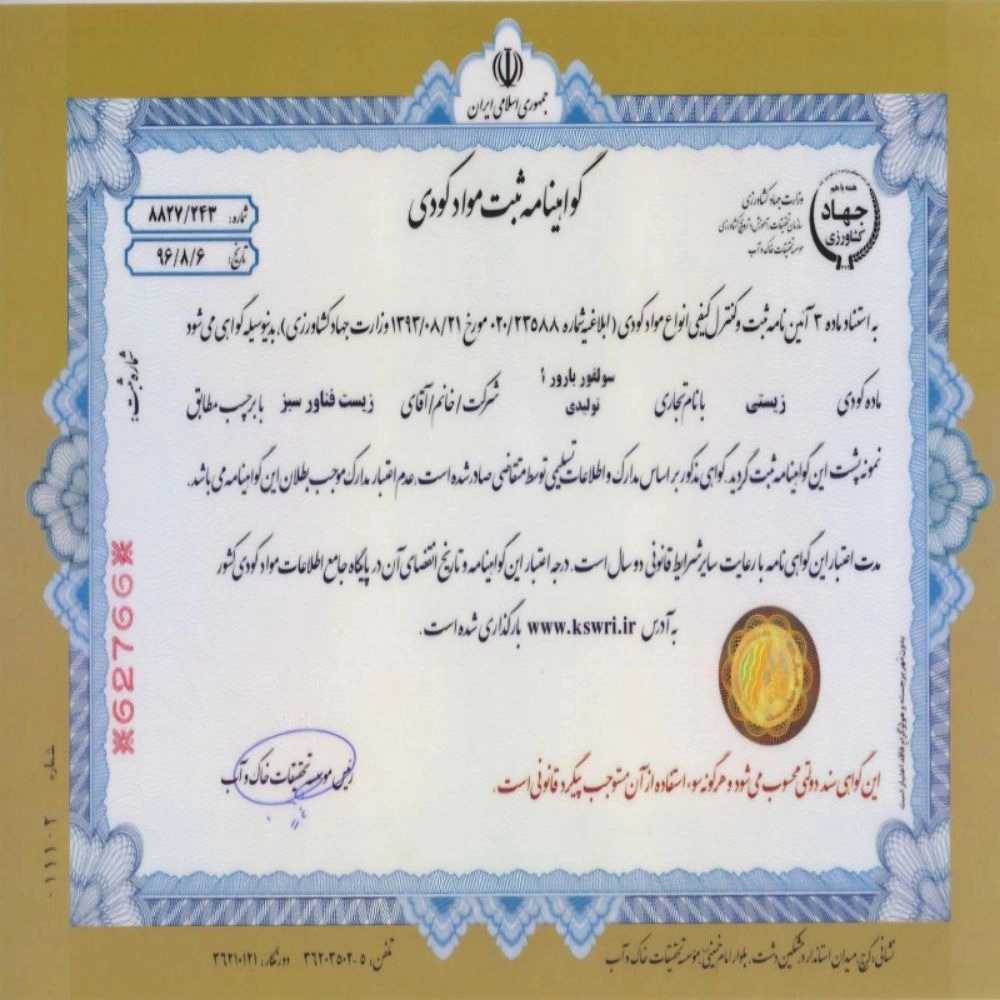 جمهوری اسلامی ایران
گواهینامه ثبت مواد کودی
همه با هم
جهاد
کشاورزی
وزارت جهاد کشاورزی
سازمان تحقیقات، آموزش و ترویج کشاورزی
موسسه تحقیقات خاک و آب
شماره: ۸۸۲۷/۲۴۳
تاریخ: ۹۶/۸/۶
به استناد ماده ۳ آئین نامه ثبت و کنترل کیفی انواع مواد کودی (ابلاغیه شماره ۰۲۰/۲۳۵۸۸ مورخ ۱۳۹۳/۰۸/۲۱ وزارت جهاد کشاورزی)، بدینوسیله گواهی می شود
ماده کودی زیستی با نام تجاری سولفور بارور ۱ تولیدی شرکت / خانم / آقای زیست فناور سبز با برچسب مطابق
نمونه پشت این گواهینامه ثبت گردید. گواهی مذکور بر اساس مدارک و اطلاعات تسلیمی توسط متقاضی صادر شده است، عدم اعتبار مدارک موجب بطلان این گواهینامه می باشد.
مدت اعتبار این گواهی نامه با رعایت سایر شرایط قانونی دو سال است. درجه اعتبار این گواهینامه و تاریخ انقضای آن در پایگاه جامع اطلاعات مواد کودی کشور
به آدرس www.kswri.ir بارگذاری شده است.
شماره ثبت:
62766
این گواهی سند دولتی محسوب می شود و هرگونه سوء استفاده از آن مستوجب پیگرد قانونی است.
رئیس موسسه تحقیقات خاک و آب
بدون مهر برجسته و هولوگرام فاقد اعتبار است
شماره ۰۱۱۱۰۲
نشانی: کرج، میدان استاندارد، مشکین دشت، بلوار امام خمینی، مؤسسه تحقیقات خاک و آب
تلفن: ۵-۳۶۲۰۳۵۰۲ دورنگار: ۳۶۲۱۰۱۲۱